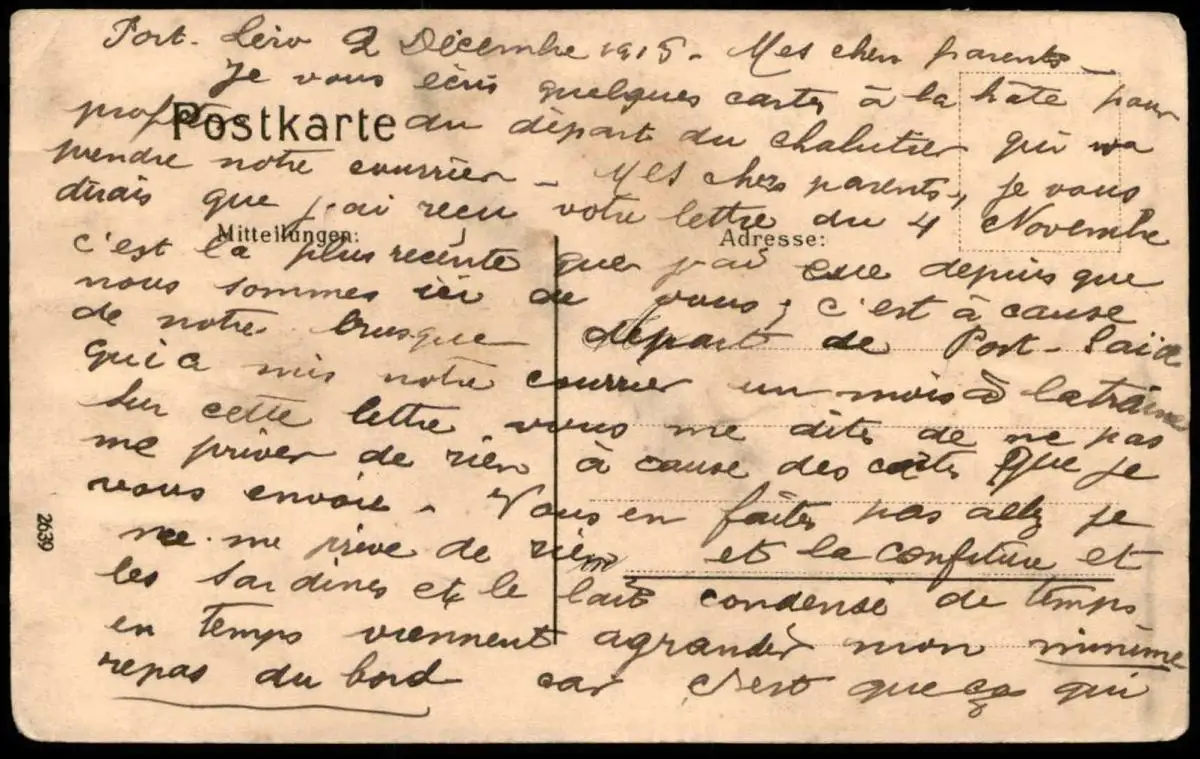 Port-Léro 2 Décembre 1915 - Mes cher parents -
Je vous écris quelques cartes à la hâte pour
profiter du départ du chalutier qui va
Postkarte
prendre notre courrier - Mes chers parents, je vous
dirais que j'ai reçu votre lettre du 4 Novembre
Mitteilungen:
Adresse:
c'est la plus recente que j'ai eue depuis que
nous sommes ici de vous; c'est à cause
de notre brusque départ de Port-Said
qui a mis notre courrier un mois à la traine
Sur cette lettre vous me dites de ne pas
me priver de rien à cause des cartes que je
vous envoie - Vous en faites pas allez je
ne me prive de rien et la confiture et
2639
les sardines et le lait condensé de temps
en temps viennent agrandir mon minime
repas du bord car c'est que ça qui